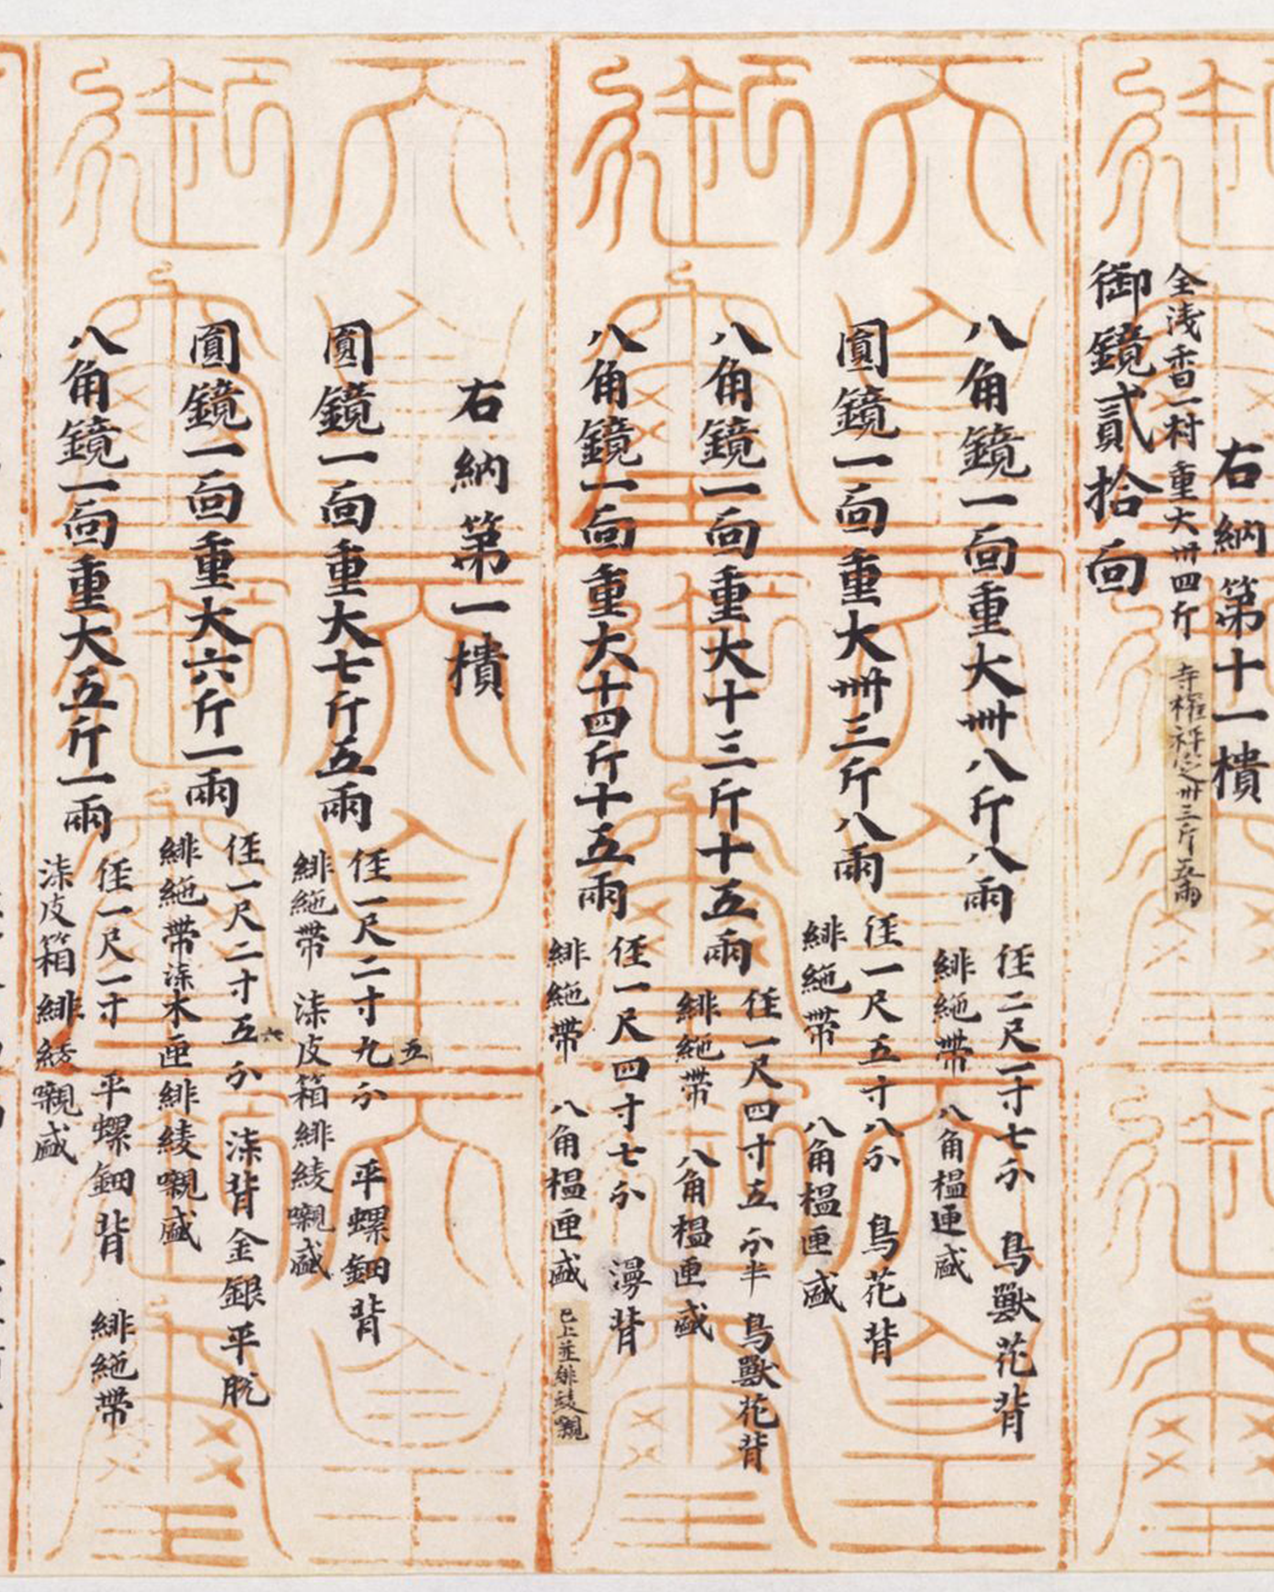 右納第十一樻
全浅香一村重大卌四斤
卌三斤五兩
御鏡貳拾面
八角鏡一面重大卌八斤八兩
径二尺一寸七分 鳥獸花背
緋絁帶 八角榲匣盛
圓鏡一面重大卌三斤八兩
径一尺五寸八分 鳥花背
緋絁帶 八角榲匣盛
八角鏡一面重大十三斤十五兩
径一尺四寸五分半 鳥獸花背
緋絁帶 八角榲匣盛
八角鏡一面重大十四斤十五兩
径一尺四寸七分 漫背
緋絁帶 八角榲匣盛
已上並緋綾嚫
右納第一樻
圓鏡一面重大七斤五兩
径一尺二寸九分 平螺鈿背
五
緋絁帶 漆皮箱緋綾嚫盛
圓鏡一面重大六斤一兩
径一尺二寸五分 漆背金銀平脱
六
緋絁帶漆木匣緋綾嚫盛
八角鏡一面重大五斤一兩
径一尺一寸 平螺鈿背 緋絁帶
漆皮箱緋綾嚫盛
天皇御璽